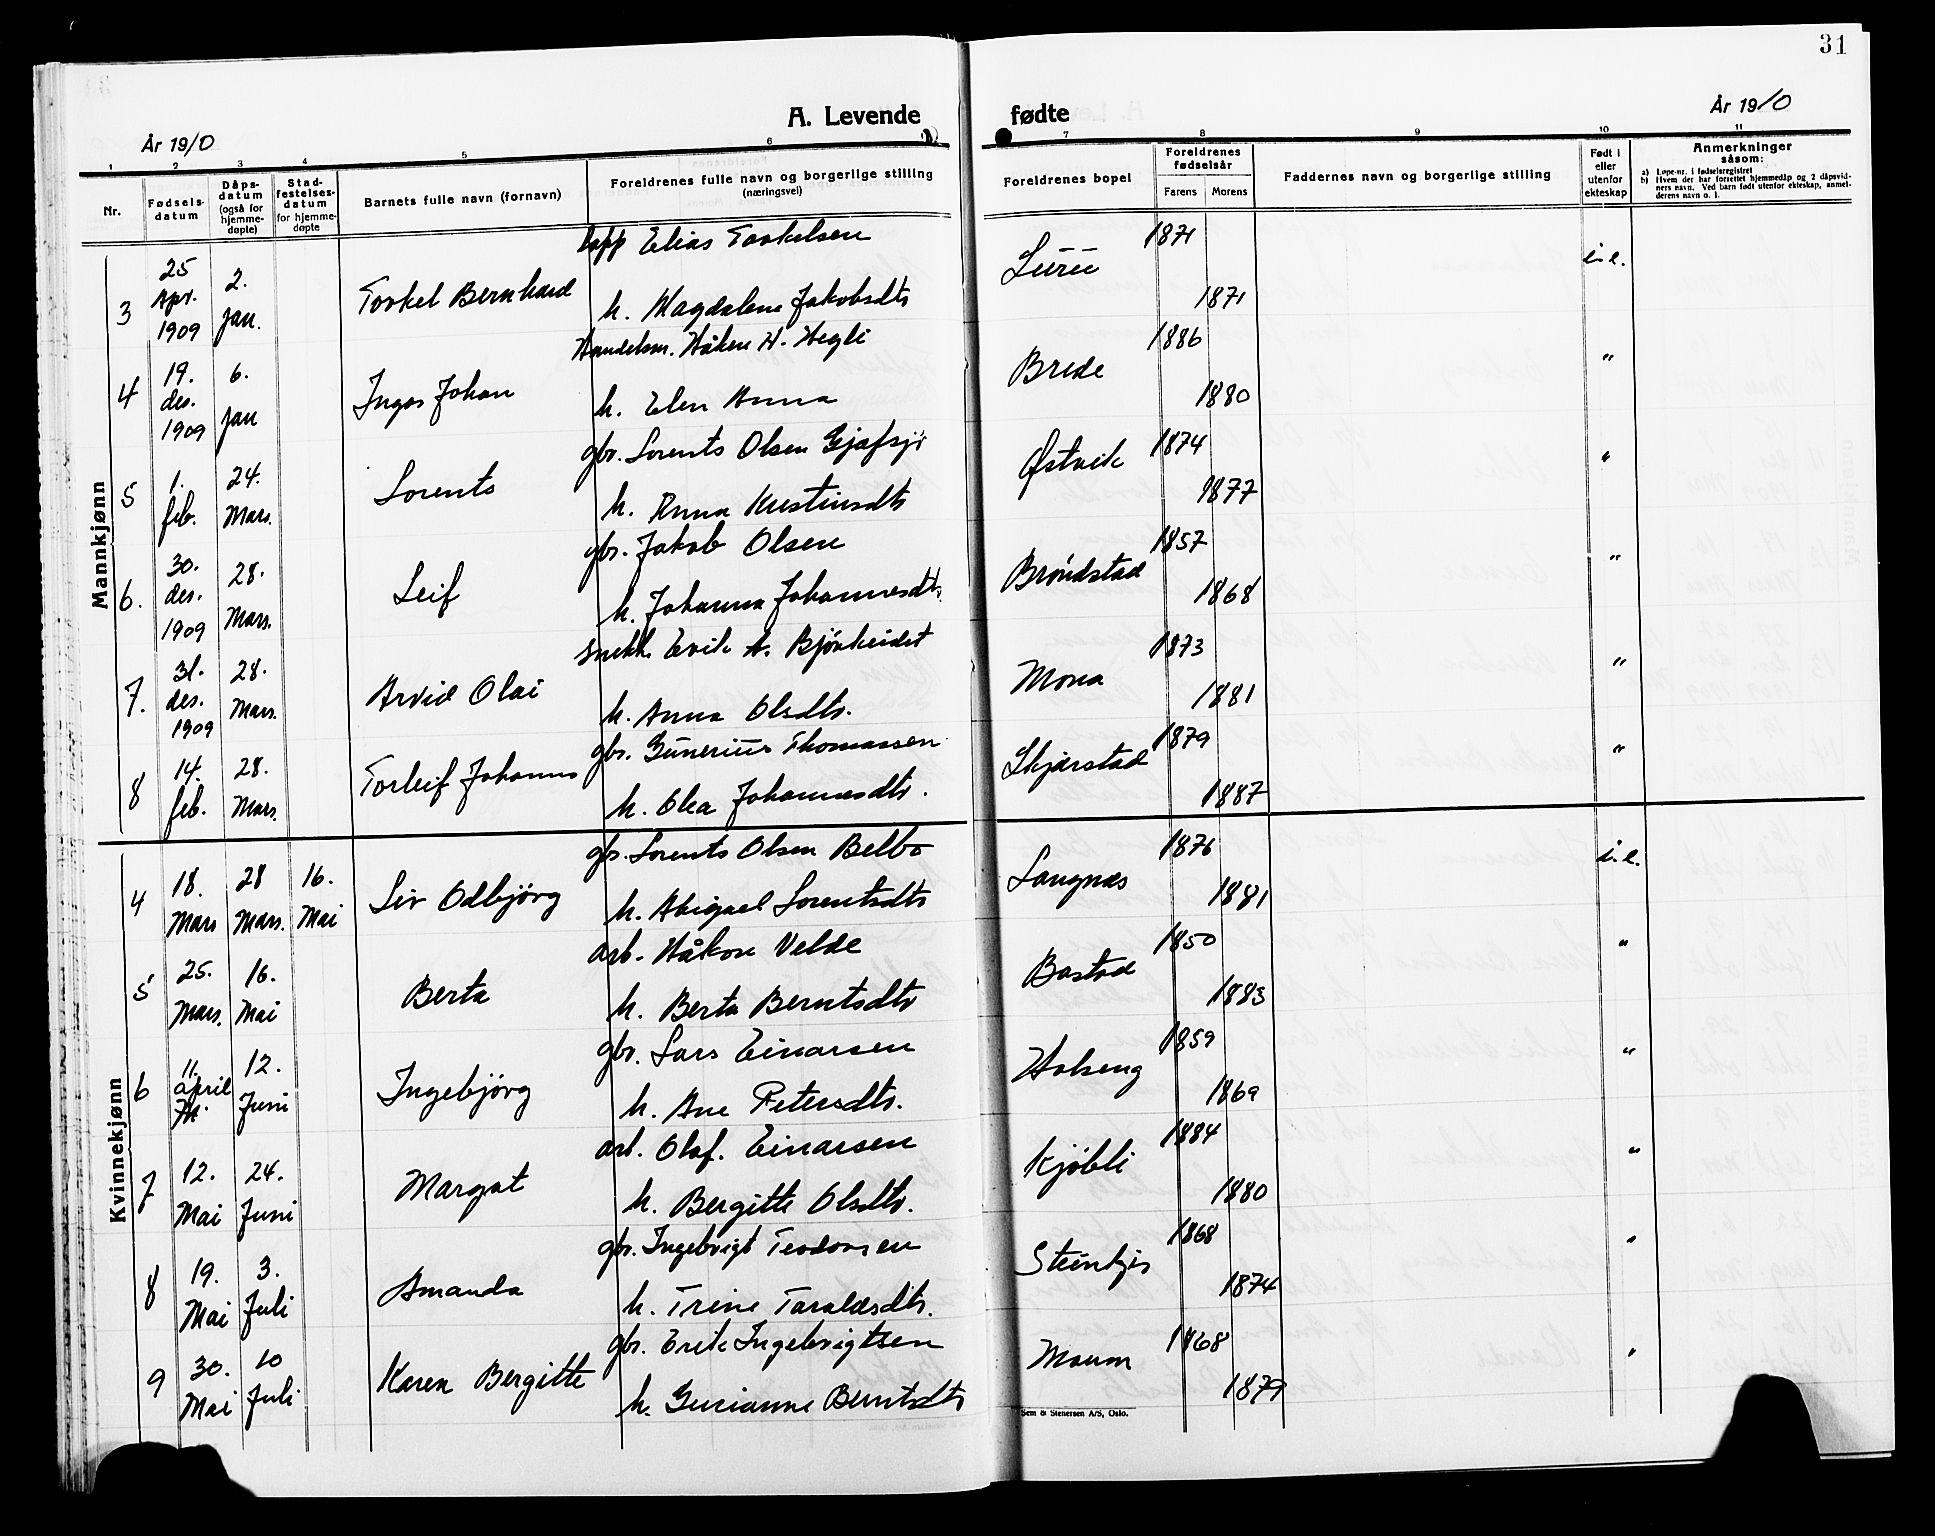 31
A. Levende fødte
År 1910
År 1910
1 2 3 4 5 6 7 8 9 10 11
Nr. Fødsels-datum Dåps-datum (også for hjemme-døpte) Stad-festelses-datum for hjemme-døpte Barnets fulle navn (fornavn) Foreldrenes fulle navn og borgerlige stilling (næringsvei) Foreldrenes bopel Foreldrenes fødselsår Farens Morens Faddernes navn og borgerlige stilling Født i eller utenfor ekteskap Anmerkninger såsom:
a) Løpe-nr. i fødselsregistret
b) Hvem der har forrettet hjemmedåp og 2 dåpsvidners navn. Ved barn født utenfor ekteskap, anmelderens navn o. l.
Mannkjønn
lapp Elias Torkelsen 1871
3 25 Apr. 1909 2. Jan. Torkel Bernhard Lurú i. e.
h. Magdalene Jakobsdtr 1871
Handelsm. Håken H. Hegli 1886
4 19. des. 1909 6. Jan Ingar Johan Brede "
h. Elen Anna 1880
gbr. Lorents Olsen Gjæfsjø 1874
5 1. feb. 24. Mars. Lorents Østvik "
h. Anna Kristinsdtr 1877
gbr. Jakob Olsen 1857
6. 30. des. 1909 28. Mars. Leif Bröndstad "
h. Johanna Johannesdtr. 1868
snekk. Erik A. Bjørkeidet 1873
7. 31. des. 1909 28. Mars. Arvid Olai Mona "
h. Anna Olsdtr. 1881
gbr. Gunerius Thomassen 1879
8 14. feb. 28. Mars. Torleif Johannes Skjærstad "
h. Olea Johannesdtr. 1887
Kvinnekjønn
gbr. Lorents Olsen Belbo 1876
4 18. Mars 28 Mars. 16. Mai Liv Odbjörg Langnes i. e.
h. Abigael Lorentsdtr 1881
arb. Håkon Velde 1850
5 25. Mars. 16. Mai Berta Bostad "
h. Berta Berntsdtr 1883
gbr. Lars Einarsen 1859
6 11. april 12. Juni Ingebjörg Holseng "
h. Ane Petersdtr. 1869
arb. Olaf. Einarsen 1884
7 12. Mai 24. Juni Margot Kjøbli "
h. Bergitte Olsdtr. 1880
gbr. Ingebrigt Teodorsen 1868
8 19. Mai 3. Juli Amanda Steinkjer "
h. Trine Taraldsdtr. 1874
gbr. Erik Ingebrigtsen 1868
9 30. Mai 10 Juli Karen Bergitte Moum "
h. Gurianne Berntsdtr 1879
Sem & Stenersen A/S, Oslo.